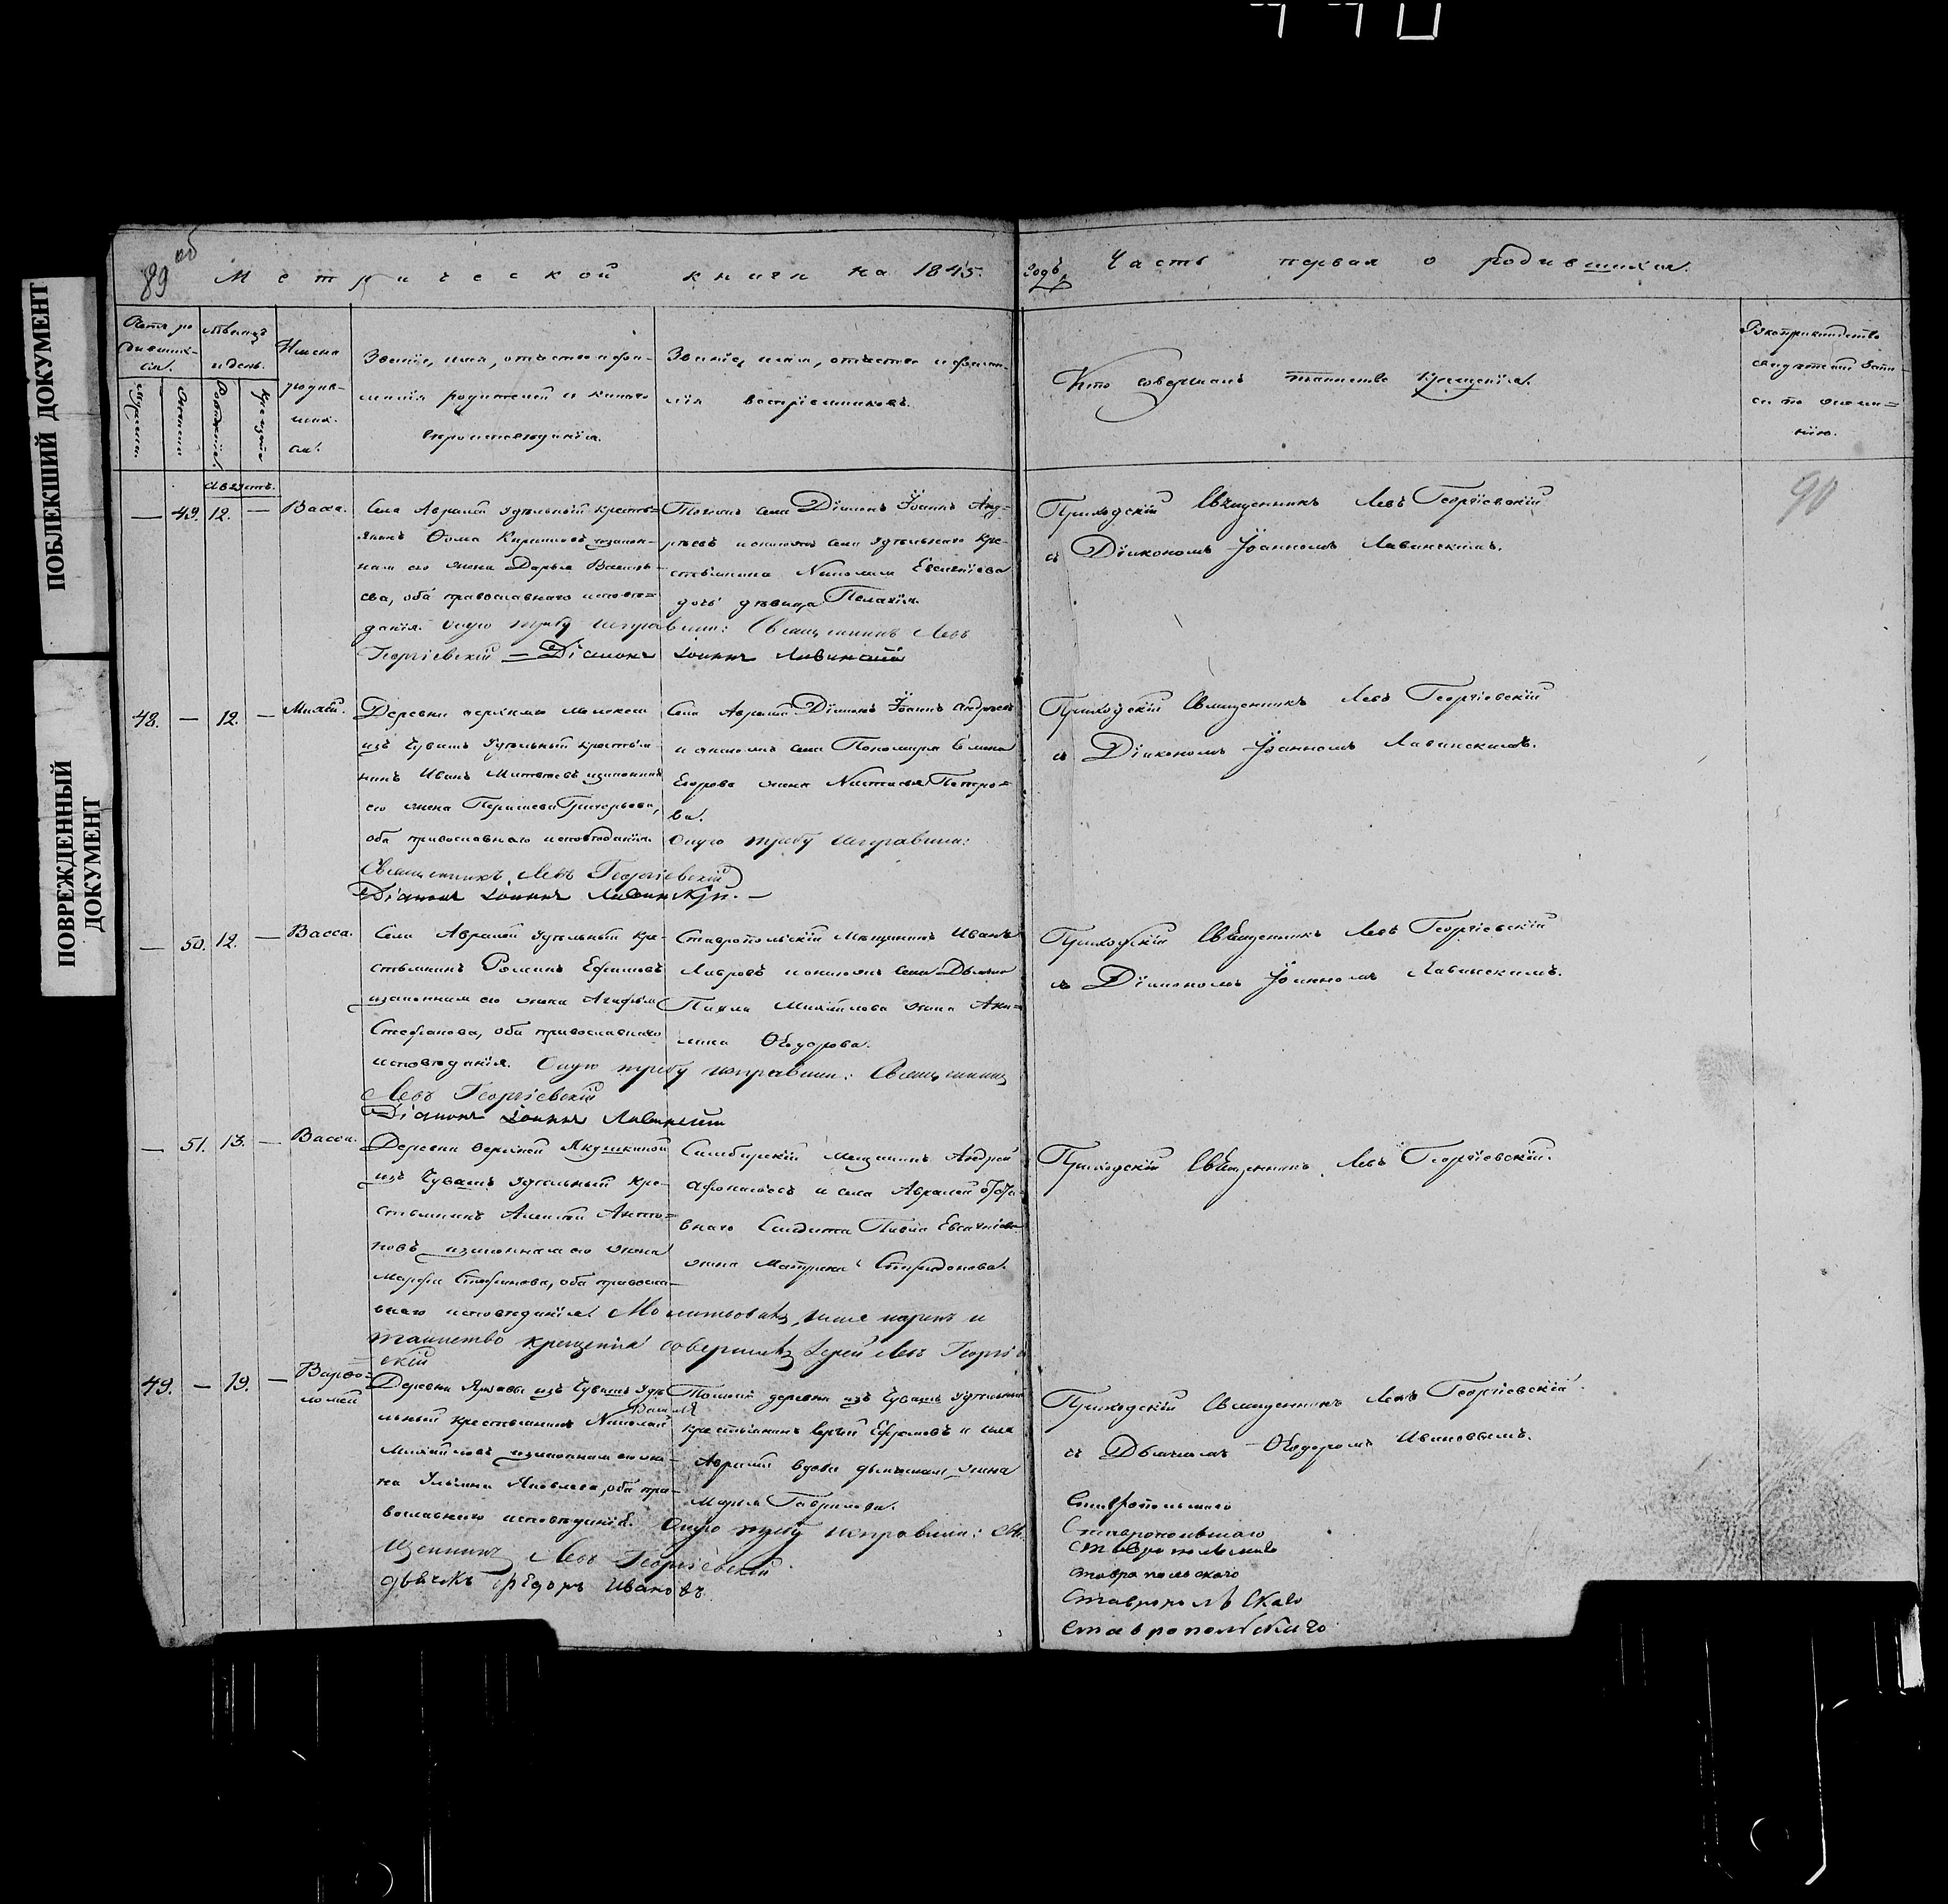 ПОБЛЕКШИЙ ДОКУМЕНТ
ПОВРЕЖДЕННЫЙ ДОКУМЕНТ
89 об
Метрической книги на 1845 годъ
Часть первая о родившихся.
Мѣсяцъ
и день.
Имена
родив-
ших-
ся.
Званіе, имя, отчество и фа-
милія родителей и какого
вѣроисповѣданія.
Званіе, имя, отчество и фами-
лія воспріемниковъ.
Кто совершалъ таинство крещенія.
Рукоприкладство
свидѣтелей запи-
си по жела-
нію.
90
Августъ.
— 49. 12. — Васса.
Села Авралей удѣльный кресть-
янинъ Ѳома Кириловъ и закон-
ная его жена Дарья Василь-
ева, оба православнаго исповѣ-
данія. Оную требу исправили: Священникъ Левъ
Георгіевскій — Діаконъ Іоаннъ Лавинскій
Тогожъ села Діаконъ Іоаннъ Анд-
реевъ и онагожъ села удѣльнаго кре-
стьянина Николая Евгеніева
дочь дѣвица Пелагія.
Приходскій Священникъ Левъ Георгіевскій
съ Діакономъ Іоанномъ Лавинскимъ.
48. — 12. — 
изъ Чувашъ удѣльный крестья-
нинъ Иванъ Матвѣевъ и законная
его жена Григорьева,
оба православнаго исповѣданія.
Священникъ Левъ Георгіевскій
Діаконъ Іоаннъ Лавинскій. —
Села Авралей Діаконъ Іоаннъ Андреевъ
и онагожъ села Пономаря
Егорова жена Настасья Петро-
ва.
Оную требу исправили:
Приходскій Священникъ Левъ Георгіевскій
съ Діакономъ Іоанномъ Лавинскимъ.
— 50. 12. — Васса.
Села Авралей удѣльный кре-
стьянинъ Романъ Ефимовъ
и законная его жена Агафья
Стефанова, оба православнаго
исповѣданія. Оную требу исправили: Священникъ
Левъ Георгіевскій
Діаконъ Іоаннъ Лавинскій
Ставропольскій Мѣщанинъ Иванъ
Лавровъ и онагожъ села Дьячка
Павла Михайлова жена Аку-
лина Ѳедорова.
Приходскій Священникъ Левъ Георгіевскій
съ Діакономъ Іоанномъ Лавинскимъ.
— 51. 13. — Васса.
Деревни верхней Якушкиной
изъ Чувашъ удѣльный кре-
стьянинъ Алексѣй Анто-
новъ и законная его жена
Марфа Стефанова, оба правосла-
внаго исповѣданія. Молитвовалъ, имя нарекъ и
таинство крещенія совершилъ Іерей Левъ Георгіев
скій
Симбирскій Мещанинъ Андрей
Афонасьевъ и села Авралей
Солдата Павла Евгеніева
жена Матрена Спиридонова.
Приходскій Священникъ Левъ Георгіевскій.
49. — 19. — Варѳо-
ломей
изъ Чувашъ удѣ-
льный крестьянинъ Николай
Михайловъ и законная его же-
на Ульяна Яковлева, оба пра-
вославнаго исповѣданія. Оную требу исправили: Свя
щенникъ Левъ Георгіевскій.
дьячекъ Федоръ Ивановъ.
Тойжей деревни изъ Чувашъ удѣльный
крестьянинъ Сергѣй Ефремовъ и села
Авралей вдова дьячкова жена
Марья Гаврилова.
Приходскій Священникъ Левъ Георгіевскій
съ Дьячкомъ Ѳедоромъ Ивановымъ.
Ставропольскаго
Ставропольскаго
Ставропольскаго
Ставропольскаго
Ставропольскаго
Ставропольскаго